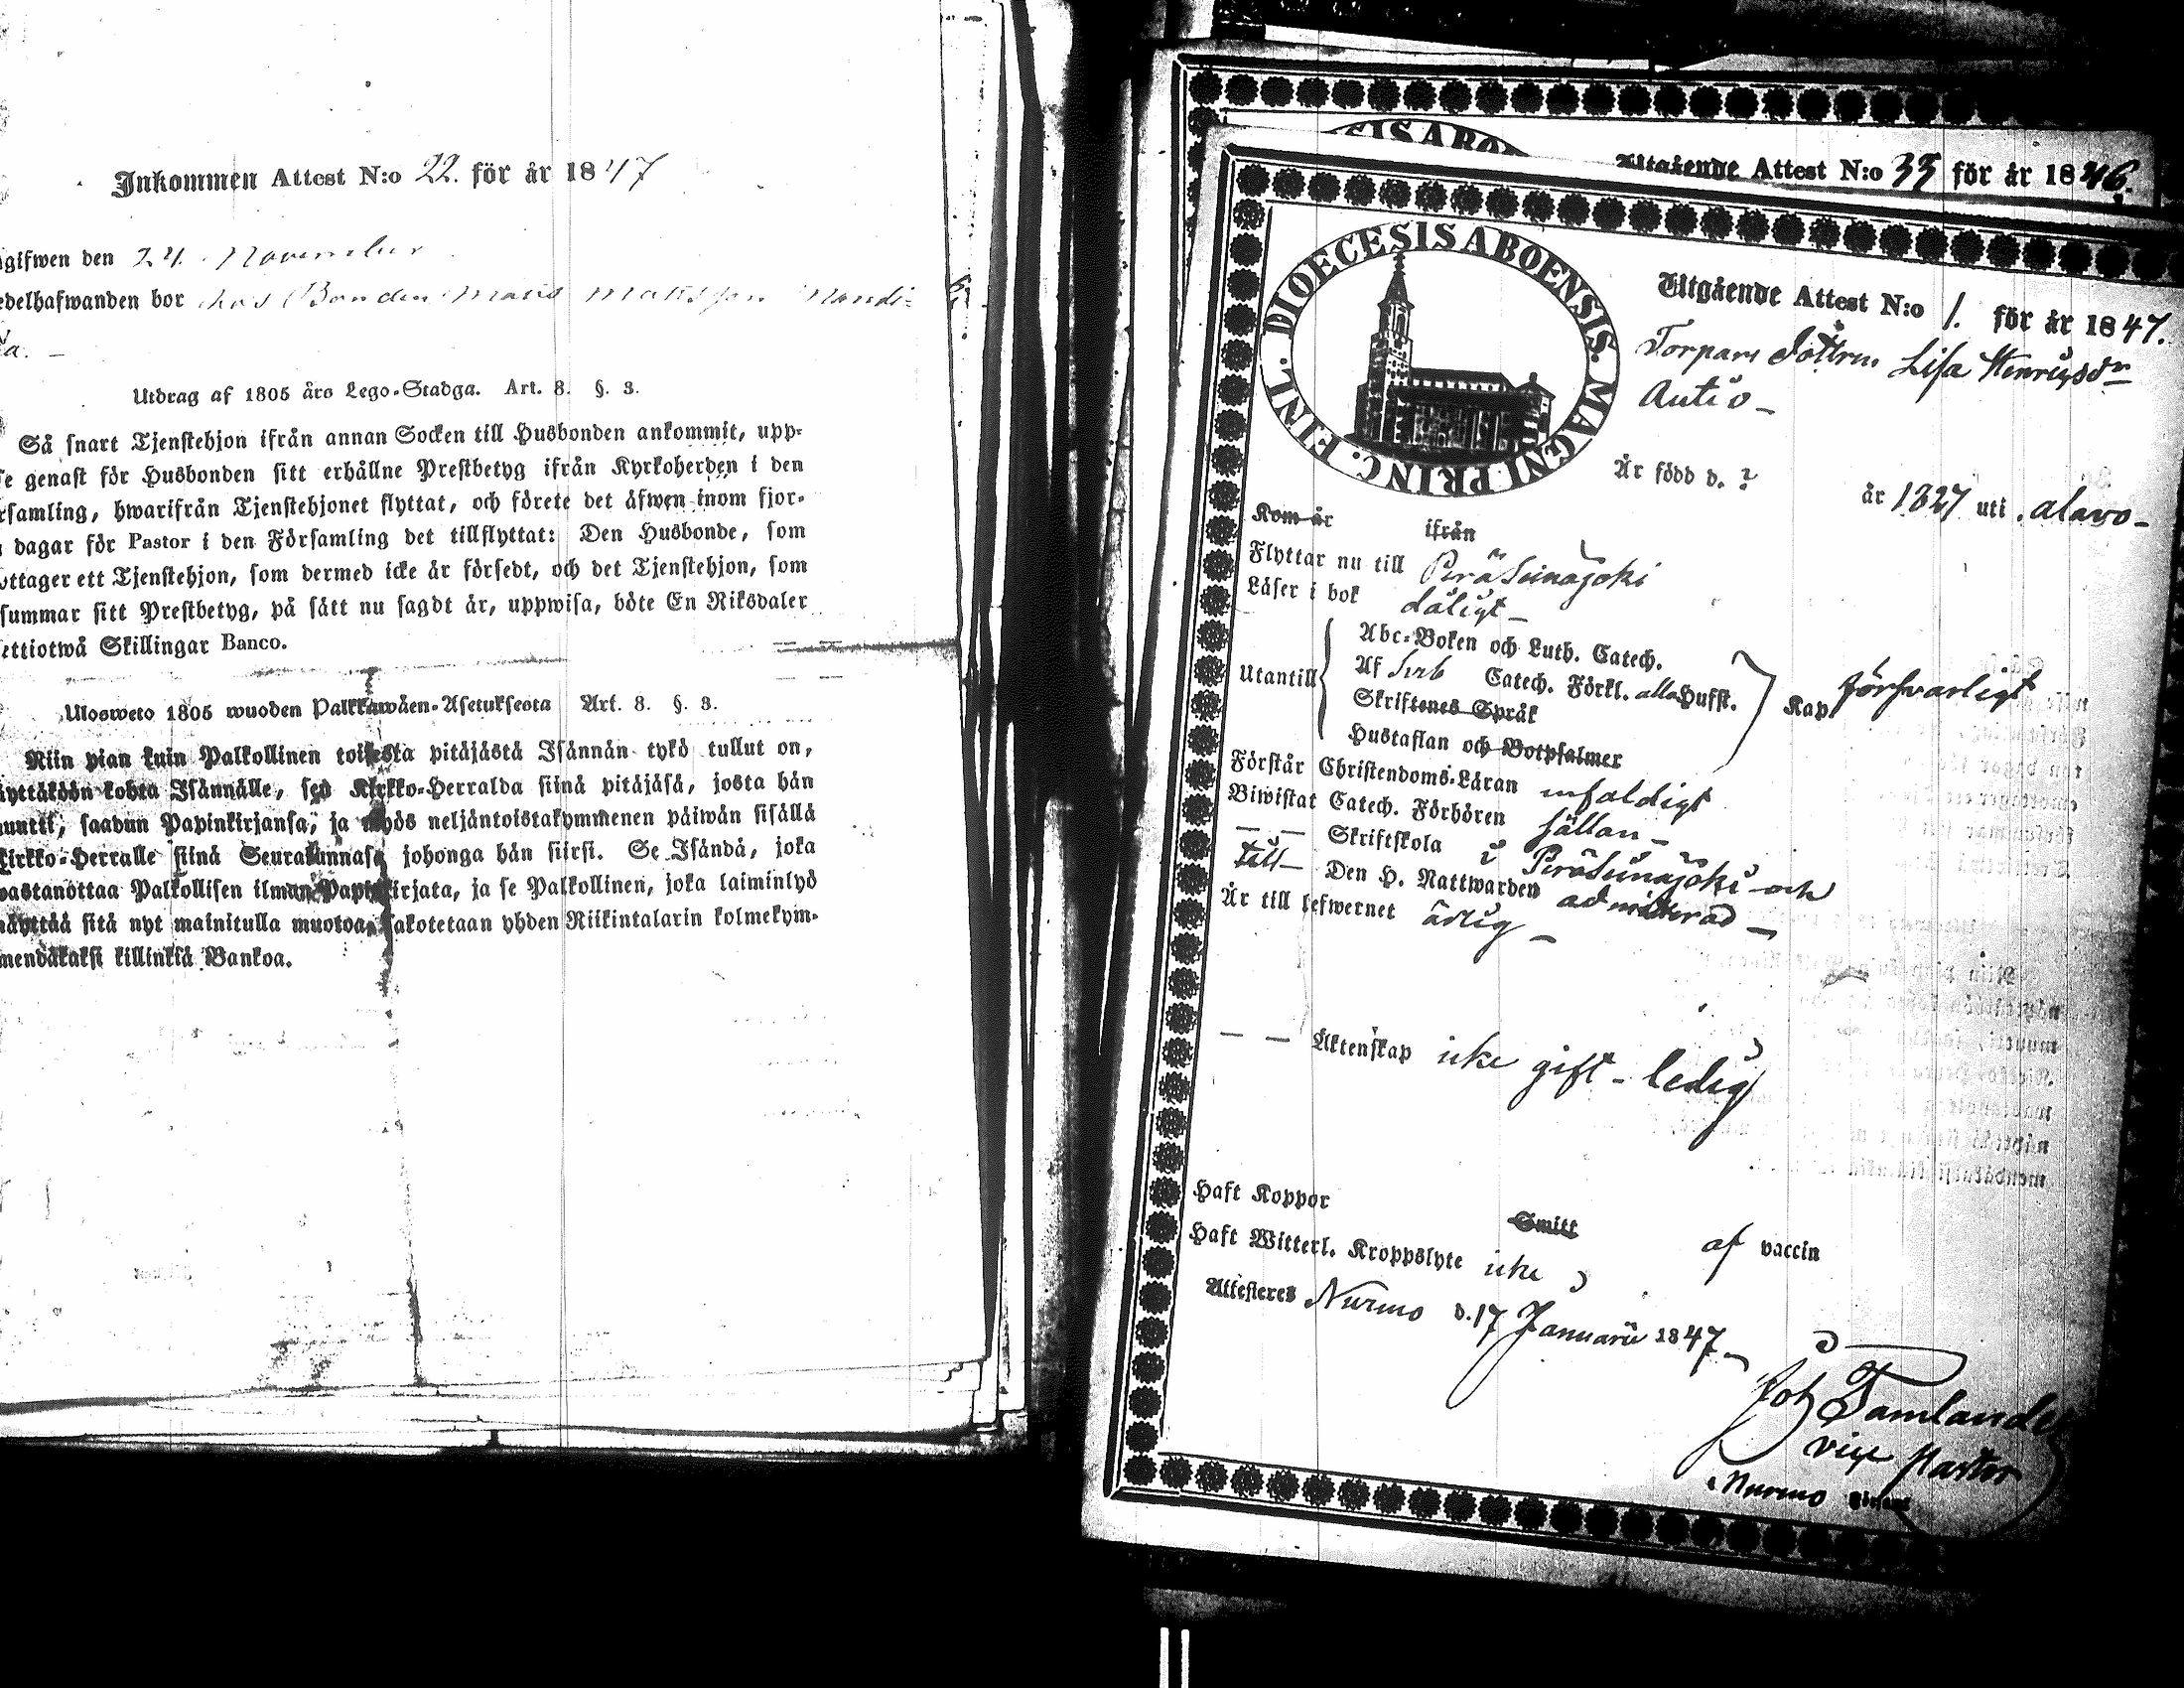 Inkommen Attest N:o 22. för år 1847
gifwen den 24. November
edelhafwanden bor hos Bonden Matts Mattsson
Utdrag af 1805 års Lego-Stadga. Art. 8. §. 3.
Så snart Tjenstehjon ifrån annan Socken till Husbonden ankommit, upp-
te genast för Husbonden sitt erhållne Prestbetyg ifrån Kyrkoherden i den
rsamling, hwarifrån Tjenstehjonet flyttat, och förete det äfwen inom fjor-
dagar för Pastor i den Församling det tillflyttat: Den Husbonde, som
ottager ett Tjenstehjon, som dermed icke är försedt, och det Tjenstehjon, som
summar sitt Prestbetyg, på sätt nu sagdt är, uppwisa, böte En Riksdaler
ettiotwå Skillingar Banco.
Ulosweto 1805 wuoden Palkkawäen-Asetuksesta Art. 8. §. 3.
Niin pian kuin Palkollinen toisesta pitäjästä Isännän tykö tullut on,
äyttäköön kohta Isännälle, sen Kirkko-Herralda siinä pitäjäsä, josta hän
muutti, saadun Papinkirjansa, ja myös neljäntoistakymmenen päiwän sisällä
Kirkko-Herralle siinä Seurakunnasa johonga hän siirsi. Se Isändä, joka
wastanottaa Palkollisen ilman Papinkirjata, ja se Palkollinen, joka laiminlyö
näyttää sitä nyt mainitulla muotoa, sakotetaan yhden Riikintalarin kolmekym-
mendäkaksi killinkiä Bankoa.
Utgående Attest N:o 33 för år 1846.
DIOECESIS ABOENSIS. MAGNI PRINC. FINL.
Utgående Attest N:o 1. för år 1847.
Torpare Dottren Lisa Henriksdr
Autio
Är född d. ? år 1827 uti Alavo
Kom år ifrån
Flyttar nu till Peräseinäjoki
Läser i bok dåligt
Utantill
Abc-Boken och Luth. Catech.
Af Sveb Catech. Förkl. alla Hufst.
Skriftenes Språk
Hustaflan och Botpsalmer
Kap försvarligt
Förstår Christendoms-Läran enfaldigt
Biwistat Catech. Förhören sällan
— — Skriftskola i Peräseinäjoki och
till Den H. Nattwarden admitterad
Är till lefwernet ärlig
— — Äktenskap icke gift - ledig
Haft Koppor Smitt af vaccin
Haft Witterl. Kroppslyte icke
Attesteras Nurmo d. 17 Januarii 1847.
Joh Tamlander
vice Pastor
i Nurmo